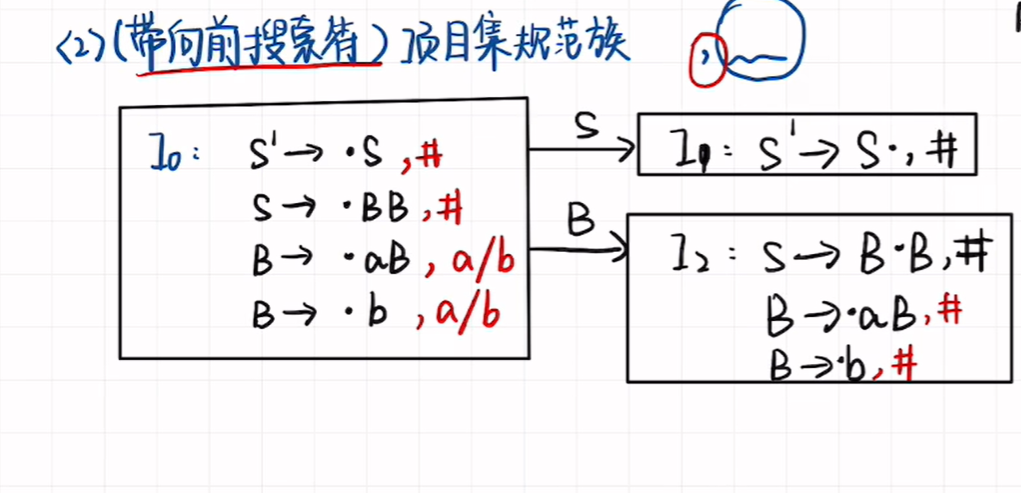 <2>(带向前搜索符)项目集规范族
I₀: S'→·S,#
S→·BB,#
B→·aB,a/b
B→·b,a/b
S
I₁: S'→S·,#
B
I₂: S→B·B,#
B→·aB,#
B→·b,#
,